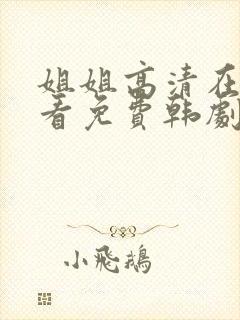 姐姐高清在
看免费韩剧
小飛鵝